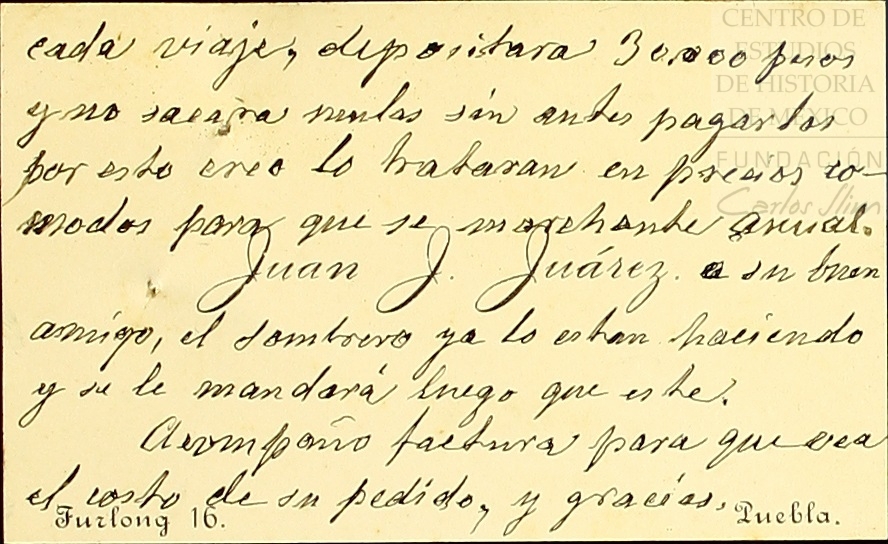 CENTRO DE
ESTUDIOS
DE HISTORIA
DE MÉXICO
FUNDACIÓN
Carlos Slim
cada viaje, depositara 30.000 pesos
y no sacara mulas sin antes pagarlos
por esto creo lo trataran en precios co-
modos para que se marchante anual.
Juan J. Juárez. a su buen
amigo, el sombrero ya lo estan haciendo
y se le mandará luego que este.
Acompaño factura para que vea
el costo de su pedido, y gracias.
Furlong 16. Puebla.